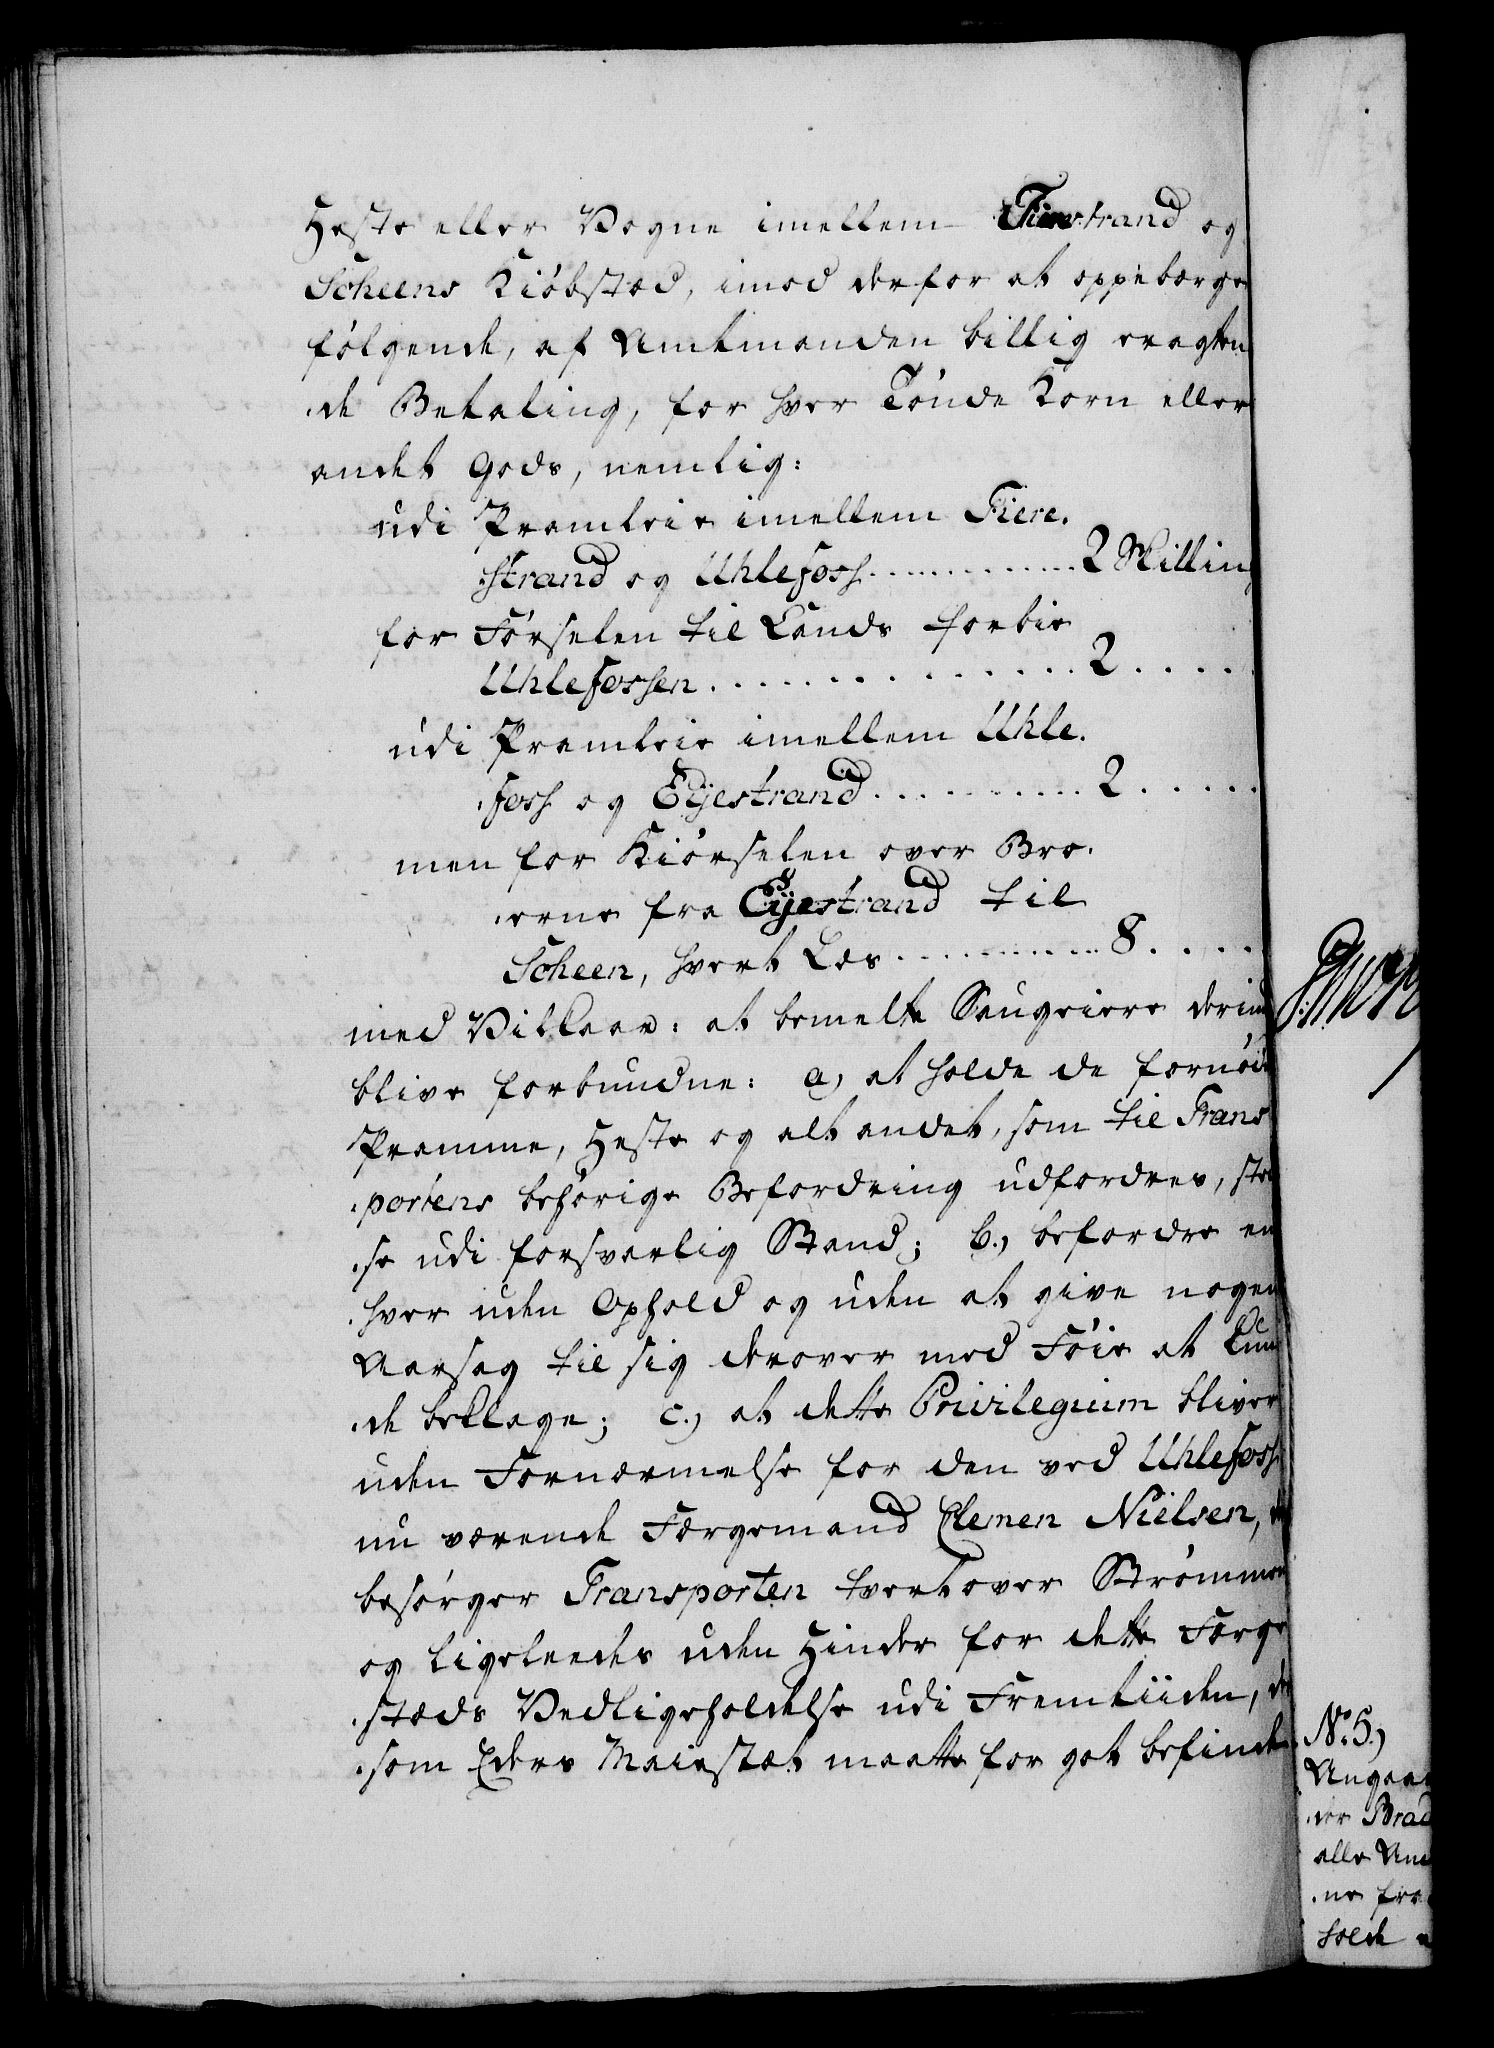 Heste eller Vogne imellem Fierestrand og
Scheens Kiöbstæd, imod derfor at oppebærge
følgende, af Amtmanden billig eragten
de Betaling, for hver Tönde Korn eller
andet Gods, nemlig:
udi Pramleie imellem Fiere.
strand og Uhlefoss............. 2 Skilling
for Förselen til Lands forbie
Uhlefossen............... 2.....
udi Pramleie imellem Uhle.
.foss og Eyestrand........... 2......
men for Kiörselen over Bro.
.erne fra Eyestrand til
Scheen, hvert Læs............ 8.....
med Vilkaar: at bemelte Saugeiere derimod
blive forbundne: a, at holde de fornöd
Pramme, Heste og alt andet, som til Trans
.portens behörige Befordring udfordres, sted
.se udi forsvarlig Stand; b., befordre en
.hver uden Ophold og uden at give nogen
Aarsag til sig derover med Föie at kun
.de beklage; c., at dette Privilegium bliver
uden Fornærmelse for den ved Uhlefoss
nu værende Færgemand Clemen Nielsen,
besörger Transporten tvert over Strömmen
og ligeleedes uden Hinder for dette Færge
.stæds Vedligeholdelse udi Fremtiiden, der
.som Eders Maiestæt maatte for got befinde
No. 5.)
Angaa
.der Brad
alle
.ne fra
holde